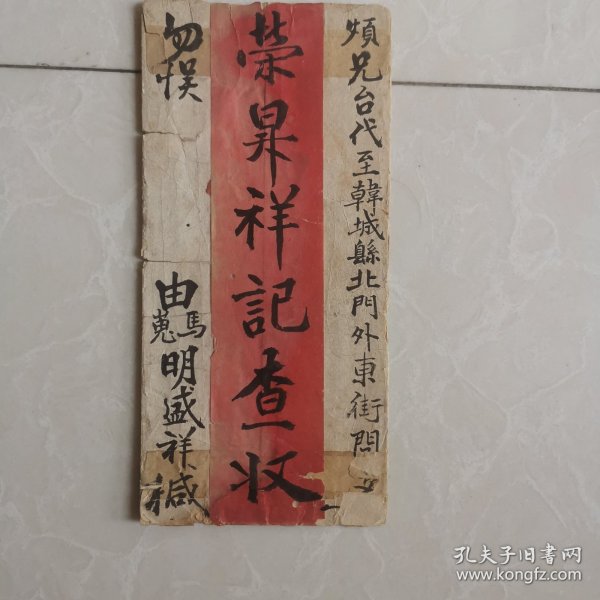 煩兄台代至韓城縣北門外東街問交
榮昇祥記查收
勿悮
由馬嵬明盛祥緘
孔夫子旧书网
www.kongfz.com